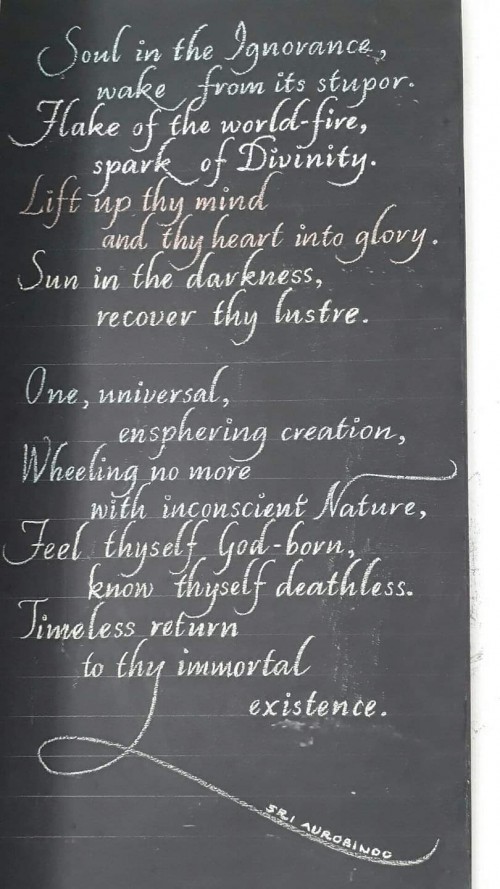 Soul in the Ignorance,
wake from its stupor.
Flake of the world-fire,
spark of Divinity.
Lift up thy mind
and thy heart into glory.
Sun in the darkness,
recover thy lustre.
One, universal,
ensphering creation,
Wheeling no more
with inconscient Nature,
Feel thyself God-born,
know thyself deathless.
Timeless return
to thy immortal
existence.
SRI AUROBINDO